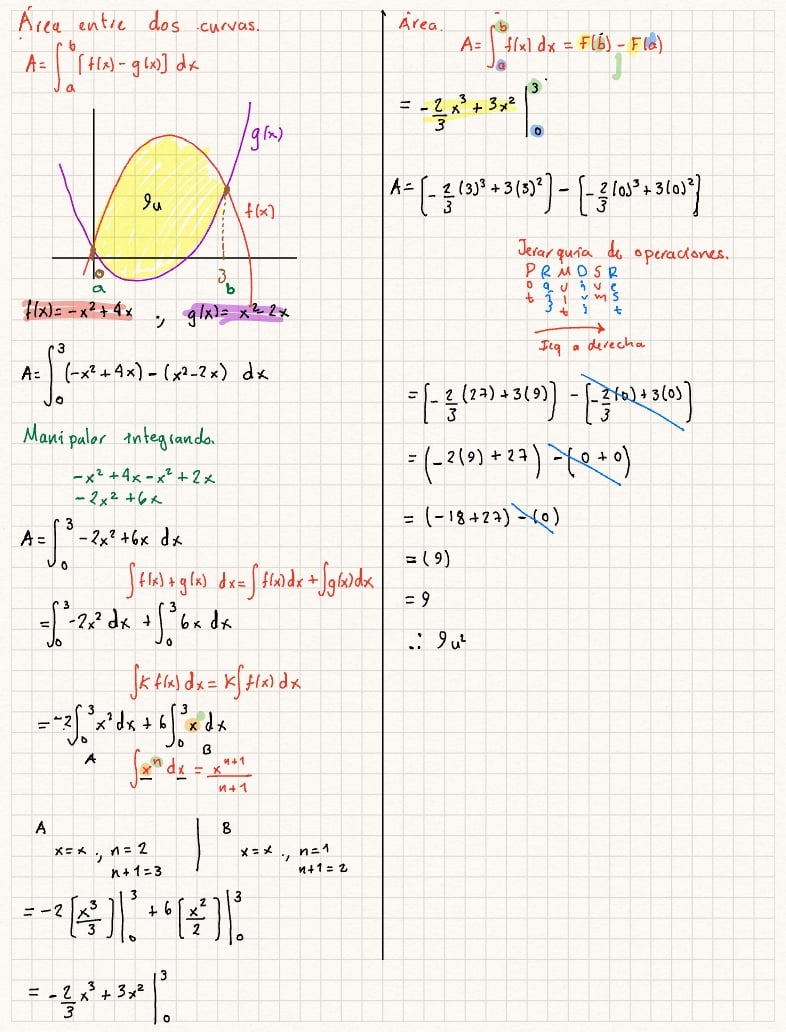 Área entre dos curvas.
A = ∫_a^b [f(x) - g(x)] dx
g(x)
9u
f(x)
0 3
a b
f(x) = -x² + 4x ., g(x) = x² - 2x
A = ∫_0^3 (-x² + 4x) - (x² - 2x) dx
Manipular integrando.
-x² + 4x - x² + 2x
-2x² + 6x
A = ∫_0^3 -2x² + 6x dx
∫ f(x) + g(x) dx = ∫ f(x) dx + ∫ g(x) dx
= ∫_0^3 -2x² dx + ∫_0^3 6x dx
∫ K f(x) dx = K ∫ f(x) dx
= -2 ∫_0^3 x² dx + 6 ∫_0^3 x dx
A B
∫ x^n dx = x^(n+1) / (n+1)
A B
x = x ., n = 2
n+1 = 3
x = x ., n = 1
n+1 = 2
= -2 [x³/3] |_0^3 + 6 [x²/2] |_0^3
= -2/3 x³ + 3x² |_0^3
Área.
A = ∫_a^b f(x) dx = F(b) - F(a)
= -2/3 x³ + 3x² |_0^3
A = [-2/3 (3)³ + 3(3)²] - [-2/3 (0)³ + 3(0)²]
Jerarquía de operaciones.
P R M D S R
Izq a derecha
= [-2/3 (27) + 3(9)] - [-2/3 (0) + 3(0)]
= (-2(9) + 27) - (0 + 0)
= (-18 + 27) - (0)
= (9)
= 9
∴ 9u²